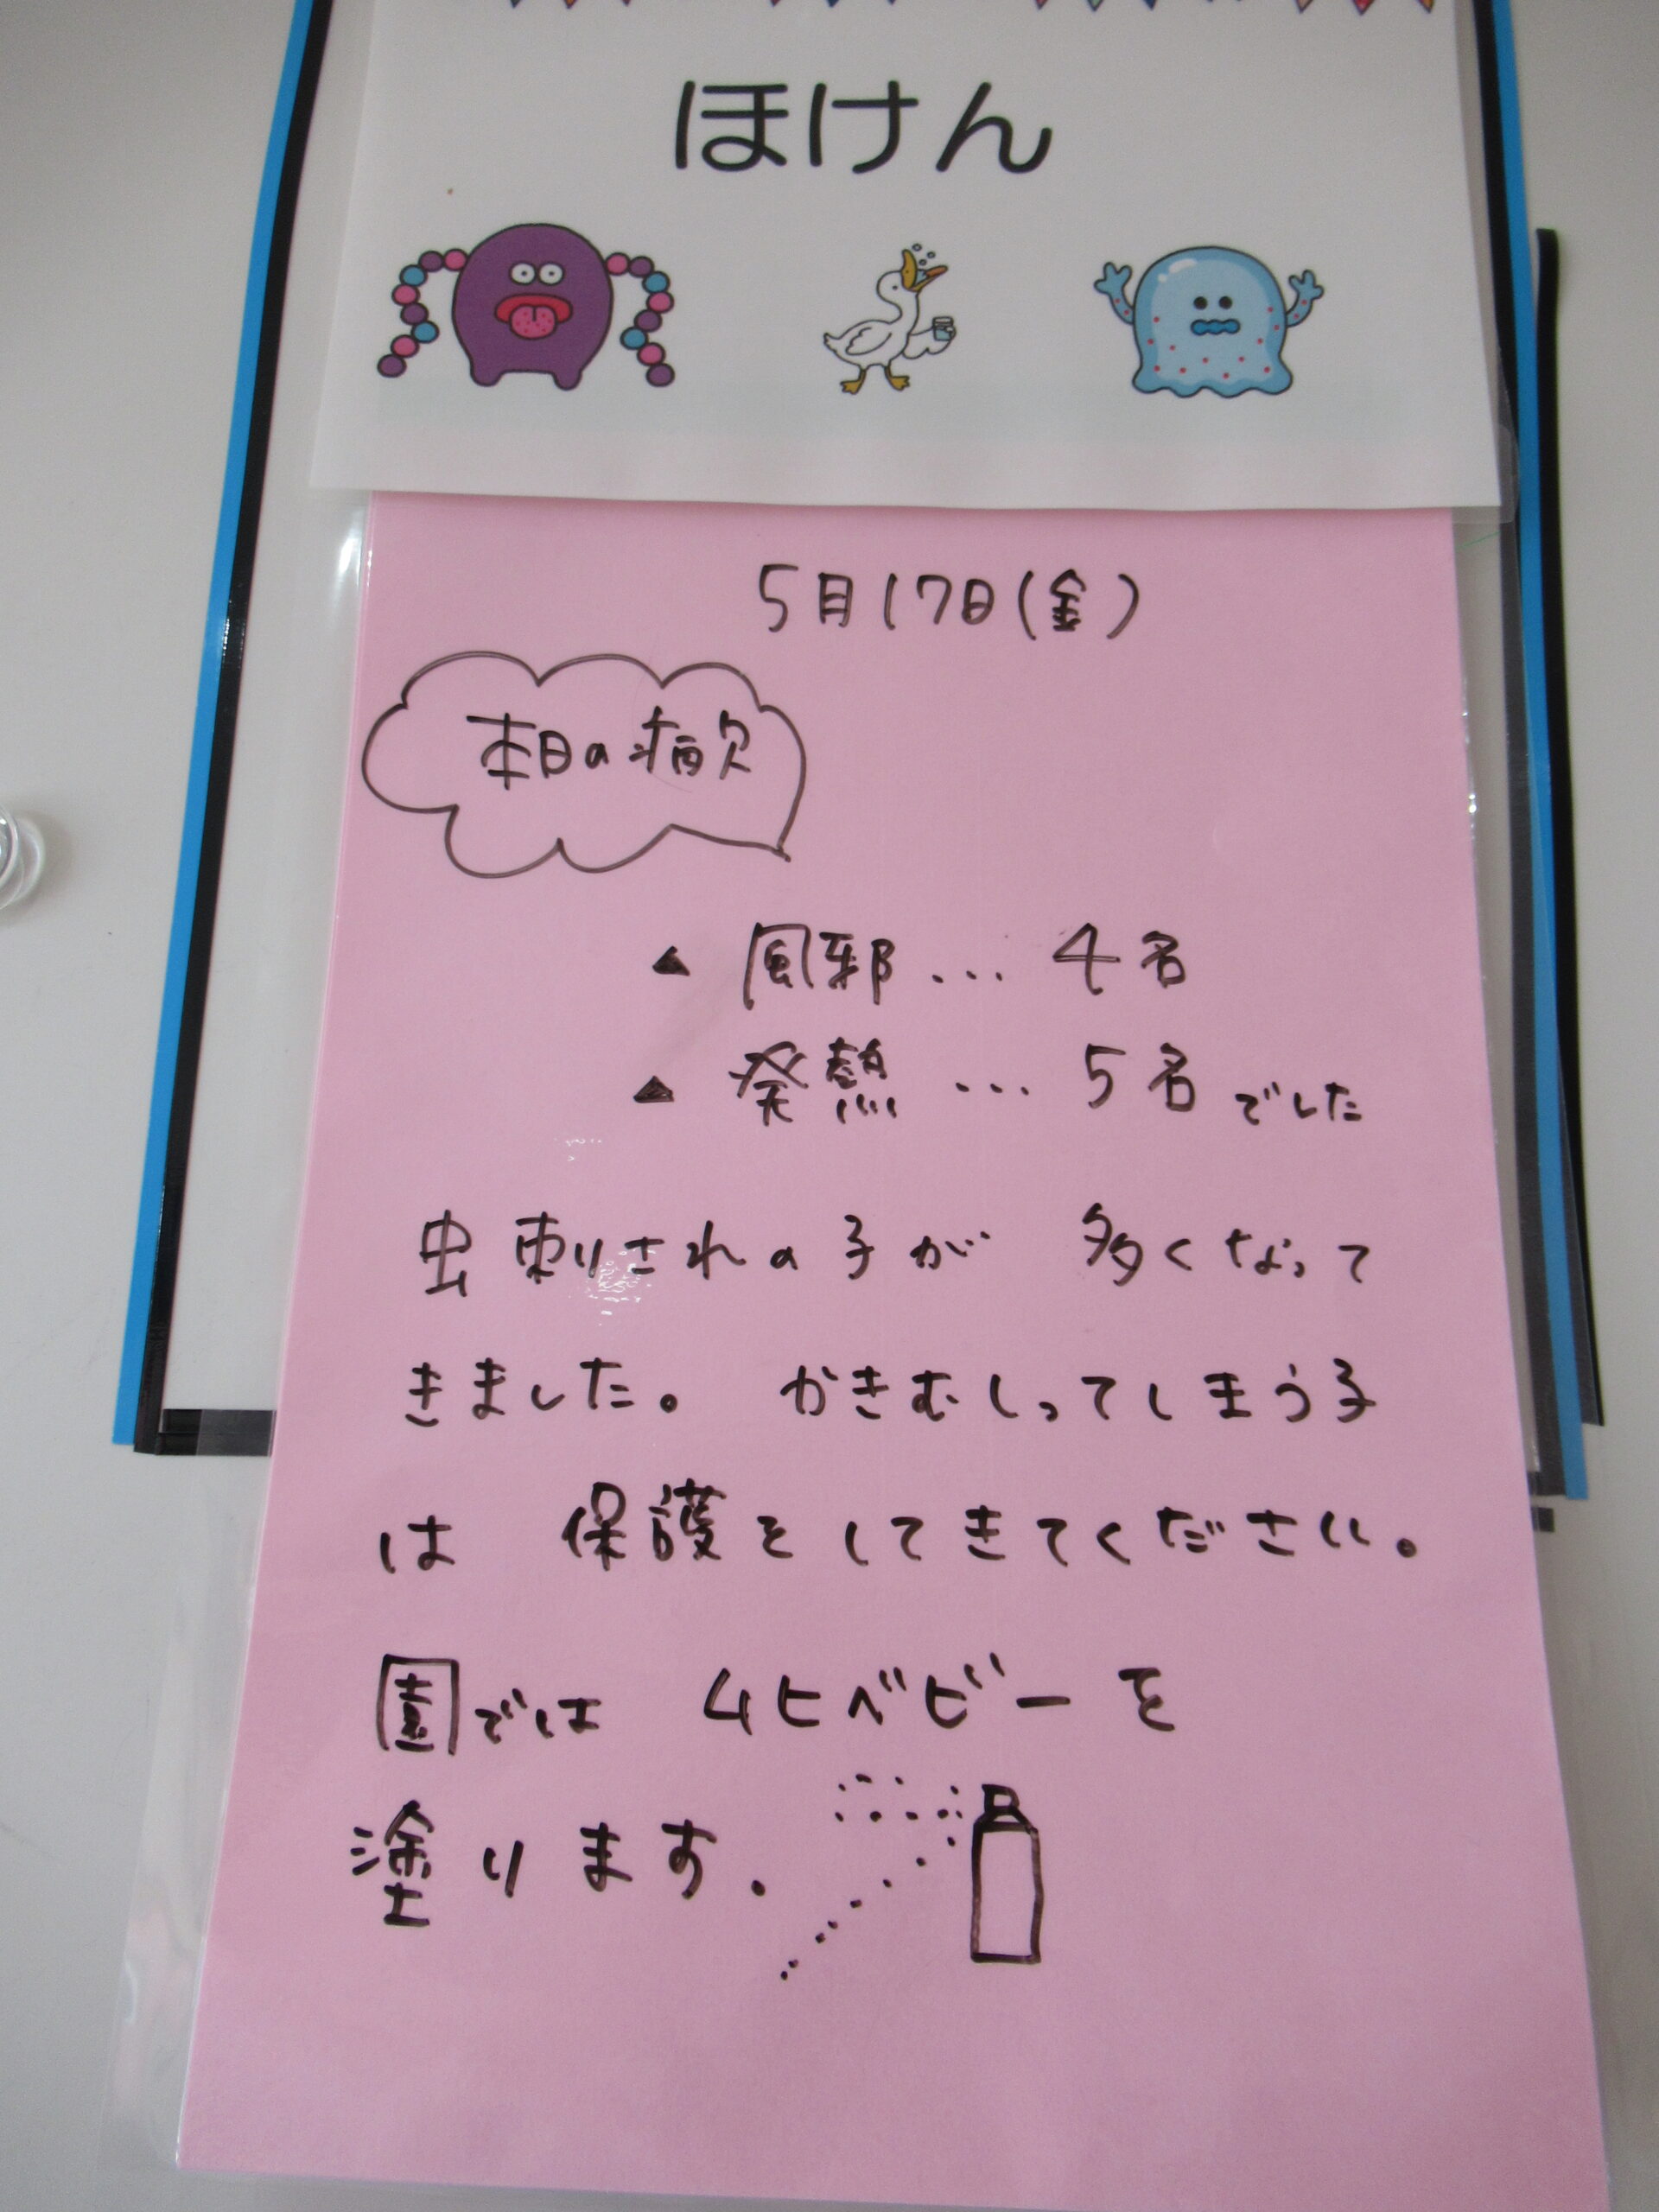 ほけん
5月17日(金)
本日の病欠
▲ 風邪 ... 4名
▲ 発熱 ... 5名でした
虫刺されの子が 多くなって
きました。 かきむしってしまう子
は 保護をしてきてください。
園では ムヒベビーを
塗ります.